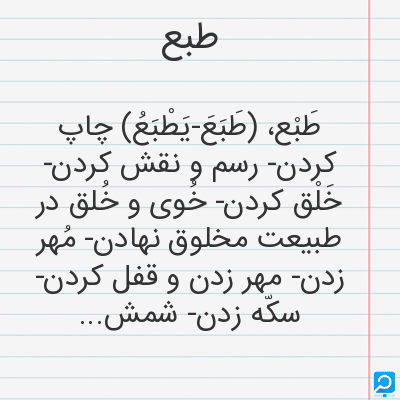 طبع
طَبْع، (طَبَعَ-یَطْبَعُ) چاپ
کردن- رسم و نقش کردن-
خَلْق کردن- خُوی و خُلق در
طبیعت مخلوق نهادن- مُهر
زدن- مهر زدن و قفل کردن-
سکّه زدن- شمش...